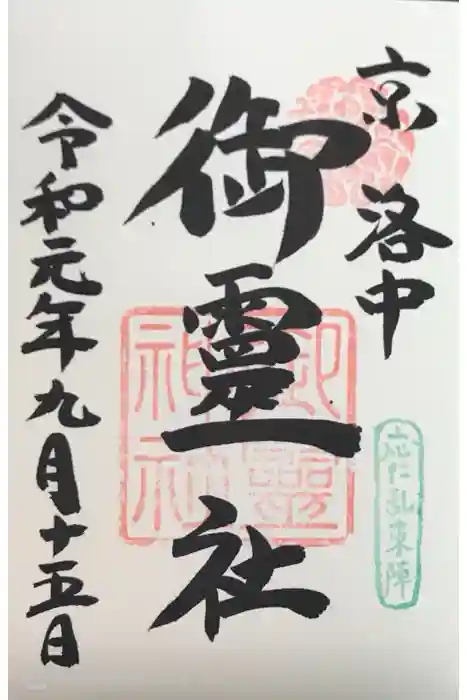 京 洛中
応仁乱東陣
御靈社
御靈神社
令和元年九月十五日